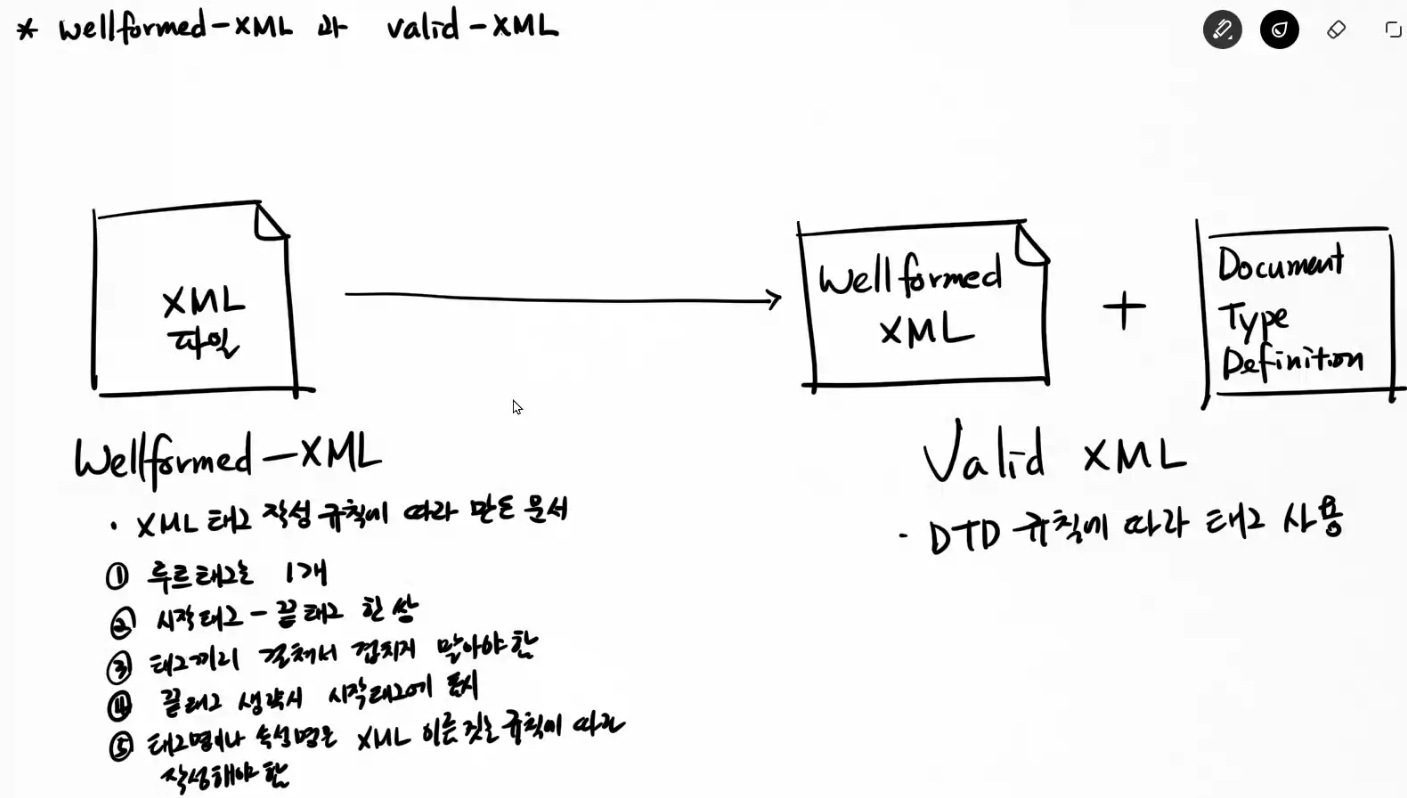 * wellformed-XML 과 valid-XML
XML
파일
Wellformed
XML
+
Document
Type
Definition
Wellformed-XML
· XML 태그 작성 규칙에 따라 만든 문서
① 루트태그는 1개
② 시작태그 - 끝태그 한 쌍
③ 태그끼리 걸쳐서 겹치지 말아야 함
④ 끝태그 생략시 시작태그에 표시
⑤ 태그명이나 속성명은 XML 이름 짓는 규칙에 따라
작성해야 함
Valid XML
· DTD 규칙에 따라 태그 사용